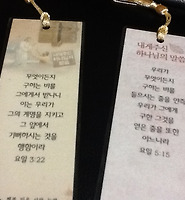 우리가
무엇이든지
구하는 바를
그에게서 받나니
이는 우리가
그의 계명을 지키고
그 앞에서
기뻐하시는 것을
행함이라
요일 3:22
내게주신
하나님의 말씀
우리가
무엇이든지
구하는 바를
들으시는 줄을 안즉
우리가 그에게
구한 그것을
얻은 줄을 또한
아느니라
요일 5:15